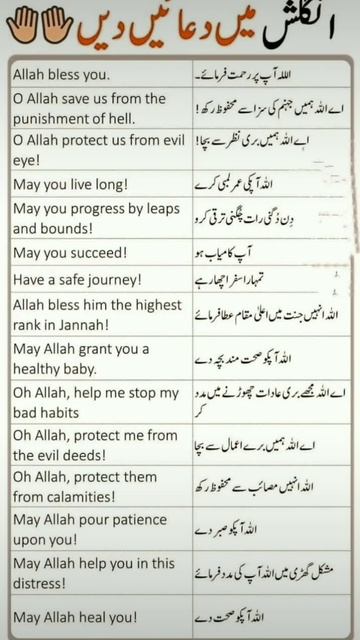 انگلش میں دعائیں دیں
Allah bless you.
اللہ آپ پر رحمت فرمائے۔
O Allah save us from the
punishment of hell.
اے اللہ ہمیں جہنم کی سزا سے محفوظ رکھ!
O Allah protect us from evil
eye!
اے اللہ ہمیں بری نظر سے بچا!
May you live long!
اللہ آپکی عمر لمبی کرے
May you progress by leaps
and bounds!
دِن دُگنی رات چگنی ترقی کرو
May you succeed!
آپ کامیاب ہو
Have a safe journey!
تمہارا سفر اچھا رہے
Allah bless him the highest
rank in Jannah!
اللہ انہیں جنت میں اعلیٰ مقام عطا فرمائے
May Allah grant you a
healthy baby.
اللہ آپکو صحت مند بچہ دے
Oh Allah, help me stop my
bad habits
اے اللہ مجھے بری عادات چھوڑنے میں مدد
کر
Oh Allah, protect me from
the evil deeds!
اے اللہ ہمیں برے اعمال سے بچا
Oh Allah, protect them
from calamities!
اللہ انہیں مصائب سے محفوظ رکھ
May Allah pour patience
upon you!
اللہ آپکو صبر دے
May Allah help you in this
distress!
مشکل گھڑی میں اللہ آپ کی مدد فرمائے
May Allah heal you!
اللہ آپکو صحت دے